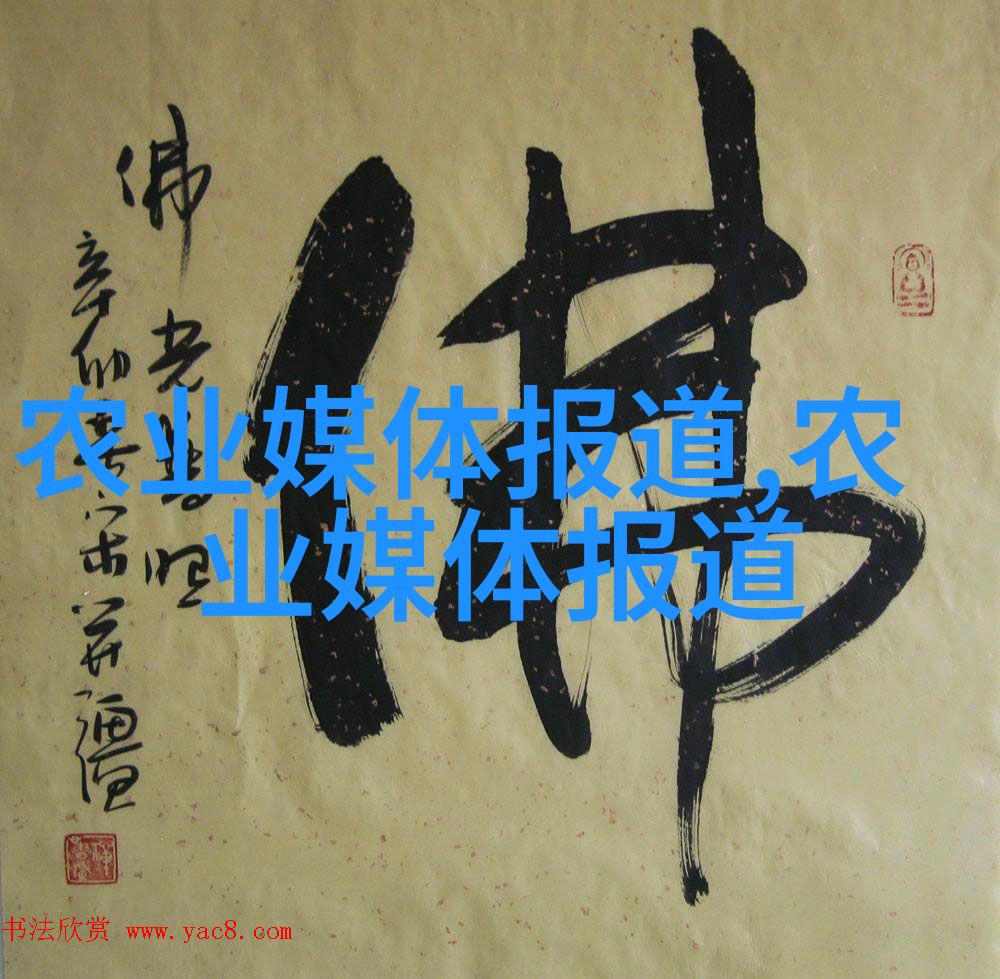 佛
佛光普照
辛卯春宋
农业媒体报道,农
业媒体报道
书法欣赏 www.yac8.com